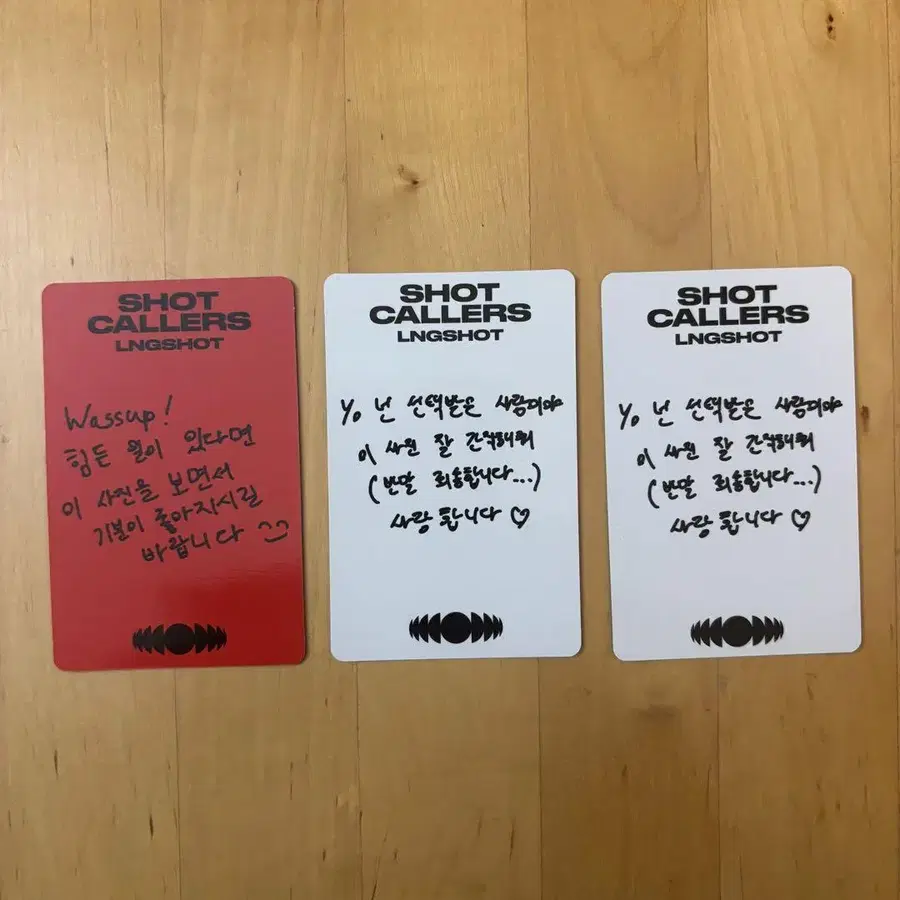 SHOT
CALLERS
LNGSHOT
Wassup!
힘든 일이 있다면
이 사진을 보면서
기분이 좋아지시길
바랍니다
SHOT
CALLERS
LNGSHOT
Yo 넌 선택받은 사람이야
이 사진 잘 간직해줘
(반말 죄송합니다...)
사랑합니다 ♡
SHOT
CALLERS
LNGSHOT
Yo 넌 선택받은 사람이야
이 사진 잘 간직해줘
(반말 죄송합니다...)
사랑합니다 ♡